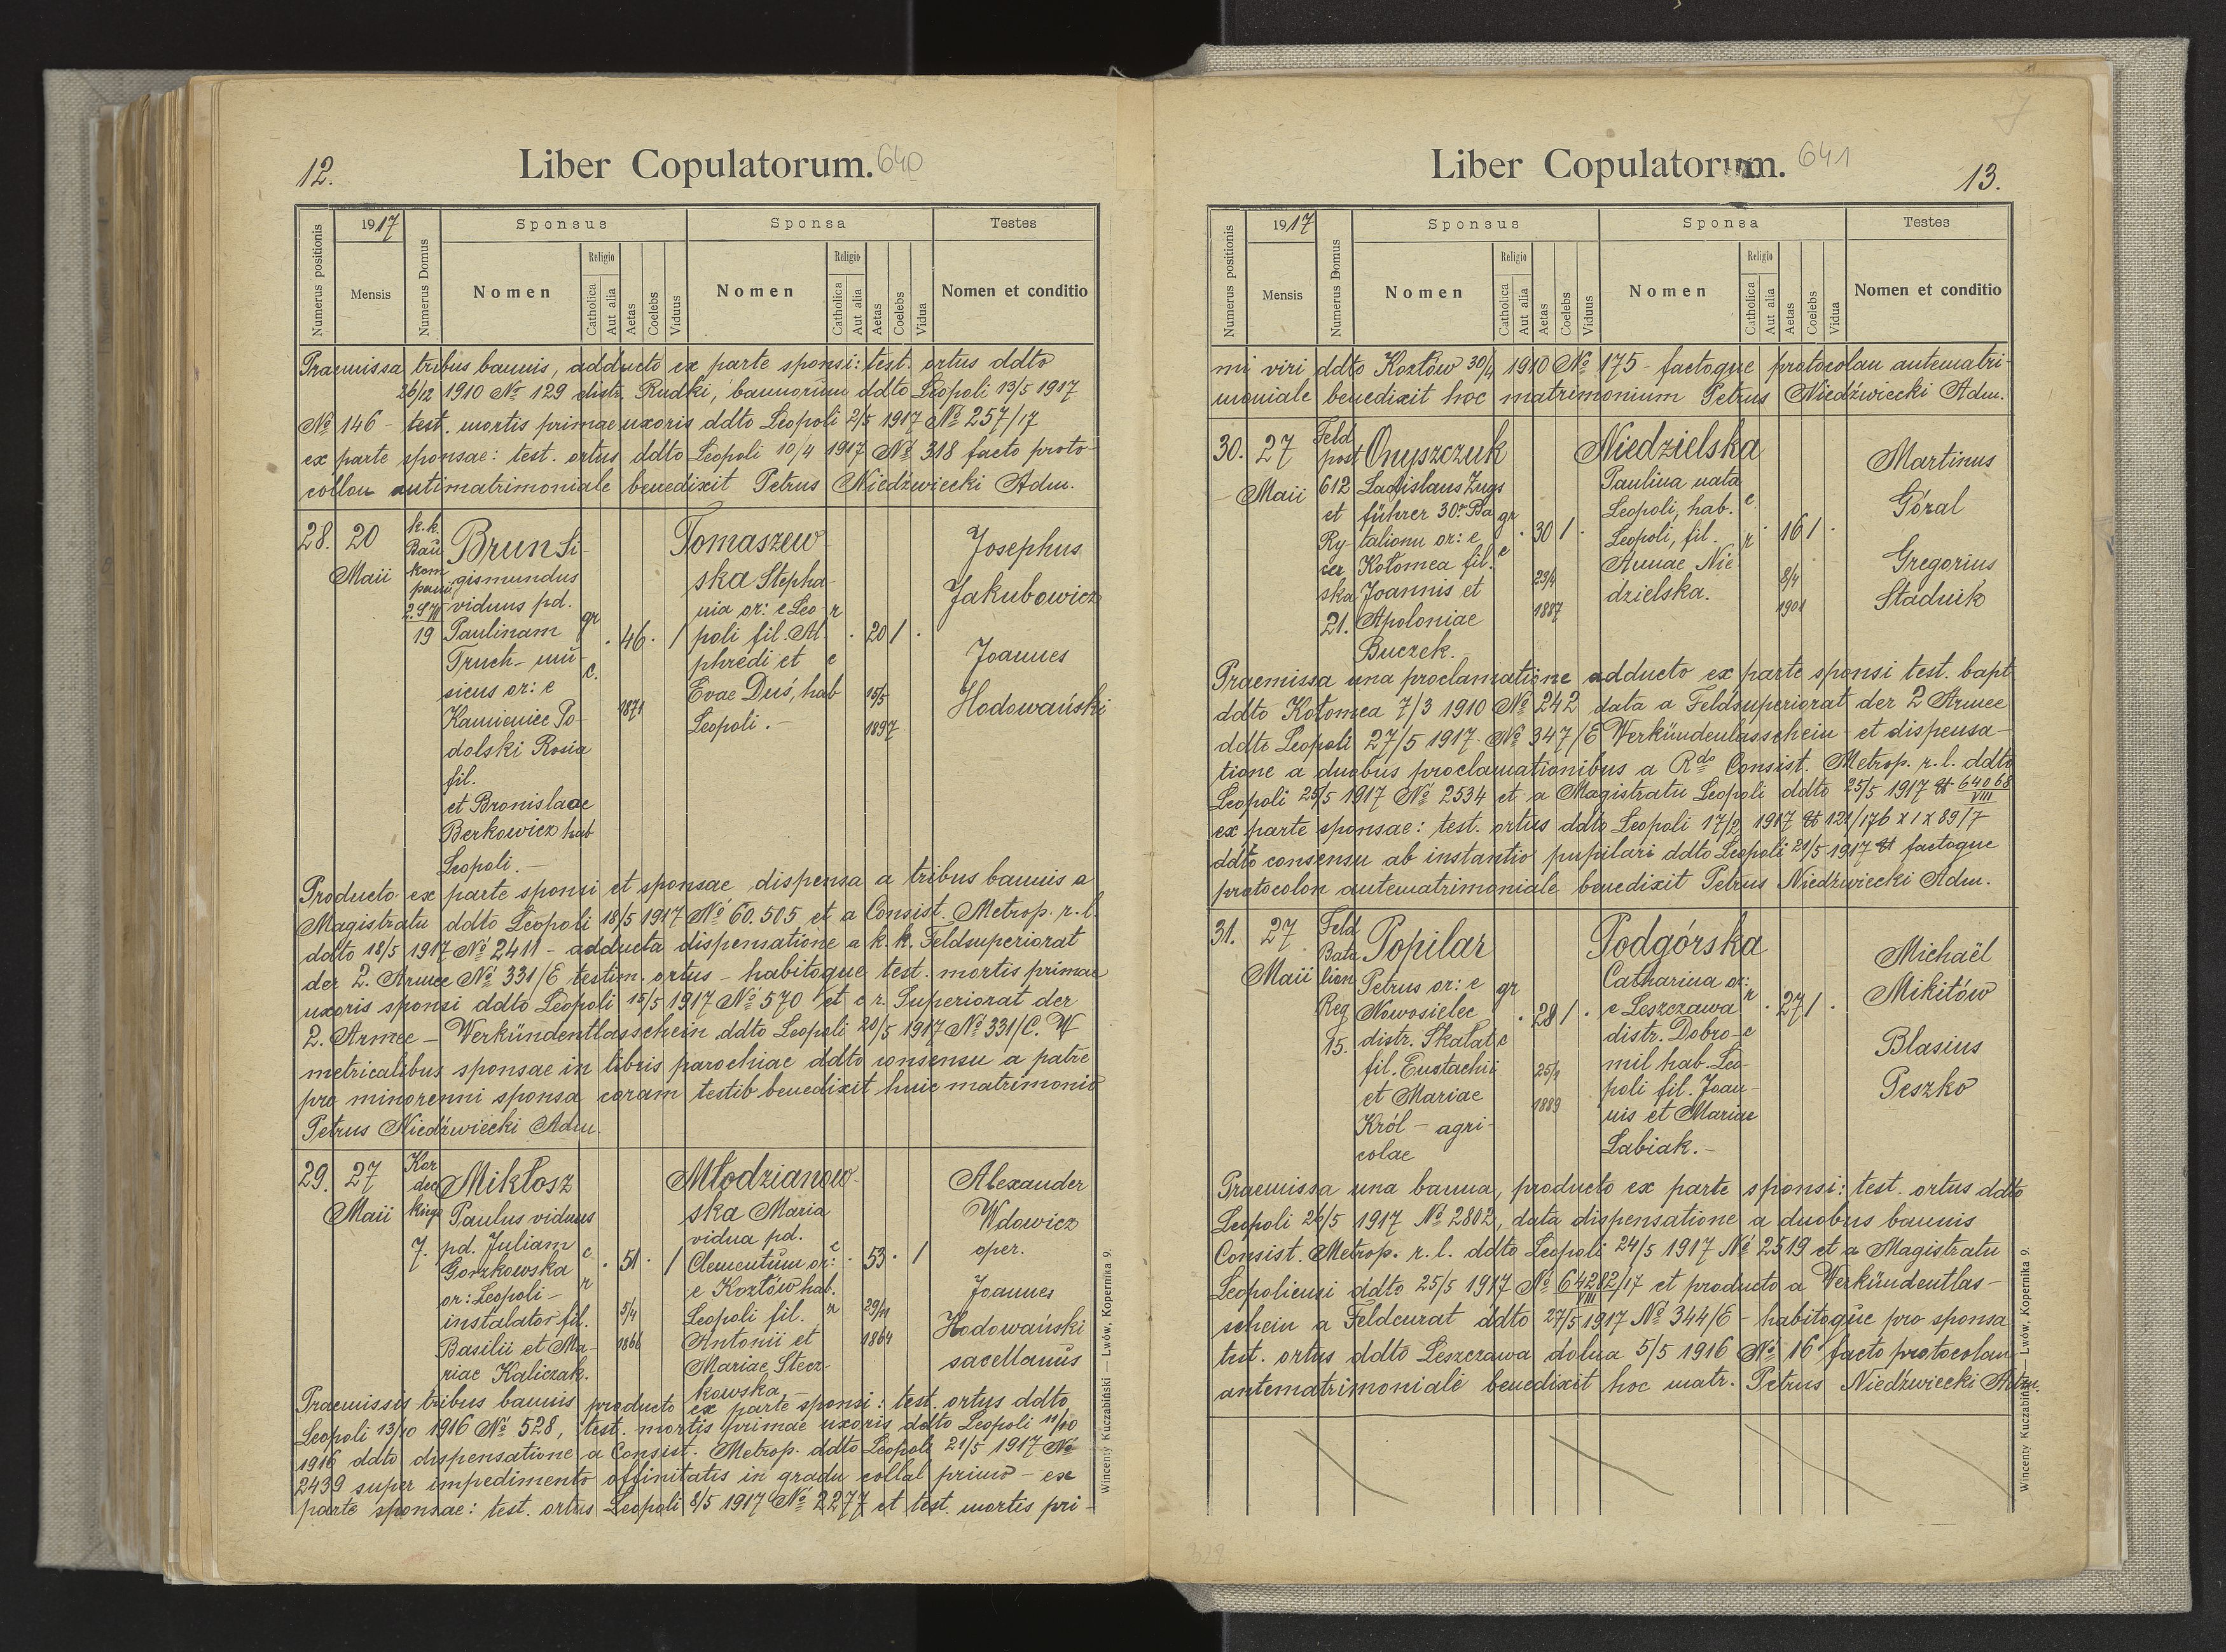 12.
Liber Copulatorum. 640
Numerus positionis
1917
Mensis
Numerus Domus
Sponsus
Nomen
Religio
Catholica
Aut alia
Aetas
Coelebs
Viduus
Sponsa
Nomen
Religio
Catholica
Aut alia
Aetas
Coelebs
Vidua
Testes
Nomen et conditio
Praemissa tribus bannis, adducto ex parte sponsi: test. ortus ddto
26/12 1910 № 129 distr. Rudki, bannorum ddto Leopoli 13/5 1917
№ 146 – test. mortis primae uxoris ddto Leopoli 2/5 1917 № 257/17
ex parte sponsae: test. ortus ddto Leopoli 10/4 1917 № 318 facto proto-
collon antimatrimoniale benedixit Petrus Niedźwiecki Adm.
28. 20 Maii
k.k.
Bau
kom
panie
19
Brun Si-
gismundus
viduus pd.
Paulinam
Truch – mu-
sicus or: e
Kamieniec Po-
dolski Rosia
fil.
et Bronislaae
Berkowicz hab
Leopoli. –
gr
c.
46. /
1871
Tomaszew-
ska Stepha-
nia or: e Leo-
poli fil. Al-
phredi et
Evae Duś, hab
Leopoli. –
r
c
20 /
15/5
1897
Josephus
Jakubowicz
Joannes
Hodowański
Producto ex parte sponsi et sponsae dispensa a tribus bannis a
Magistratu ddto Leopoli 18/5 1917 № 60.505 et a Consist. Metrop. r. l.
ddto 18/5 1917 № 2411 – adducta dispensatione a k. k. Feldsuperiorat
der 2. Armee № 331/E testim. ortus – habitoque test. mortis primae
uxoris sponsi ddto Leopoli 15/5 1917 № 570 et e r. Superiorat der
2. Armee – Werkündentlasschein ddto Leopoli 20/5 1917 № 331/C. W
metricalibus sponsae in libris parochiae ddto consensu a patre
pro minorenni sponsa coram testib benedixit huic matrimonio
Petrus Niedźwiecki Adm.
29. 27 Maii
Kor
dec
kiego
7.
Miktosz
Paulus viduus
pd. Juliam
Gorzkowska
or: Leopoli –
instalator fil.
Basilii et Ma-
riae Kaliczak.
c
r
51. /
5/4
1866
Młodzianow-
ska Maria
vidua pd.
Clementum or:
e Kozłów hab.
Leopoli fil.
Antonii et
Mariae Stecz-
kowska
c
r
53. /
29/11
1864
Alexander
Wdowicz
oper.
Joannes
Hodowański
sacellanus
Praemissis tribus bannis producto ex parte sponsi: test. ortus ddto
Leopoli 13/10 1916 № 528, test. mortis primae uxoris ddto Leopoli 11/10
1916 ddto dispensatione a Consist. Metrop. ddto Leopoli 21/5 1917 №
2439 super impedimento affinitatis in gradu collal primo – ex
parte sponsae: test. ortus Leopoli 8/5 1917 № 2277 et test. mortis pri-
Wincenty Kuczabiński — Lwów, Kopernika 9.
Liber Copulatorum. 641
13.
Numerus positionis
1917
Mensis
Numerus Domus
Sponsus
Nomen
Religio
Catholica
Aut alia
Aetas
Coelebs
Viduus
Sponsa
Nomen
Religio
Catholica
Aut alia
Aetas
Coelebs
Vidua
Testes
Nomen et conditio
mi viri ddto Kozłów 30/4 1910 № 175 – factoque protocolau antematri-
moniale benedixit hoc matrimonium Petrus Niedźwiecki Adm.
30. 27
Maii
Feld
post
612
et
Ry-
cer
ska
21.
Onyszczuk
Ladislaus Zugs
führer 30r Ba
talionu or: e
Kołomea fil.
Joannis et
Apoloniae
Buczek. –
gr
c
30 /
23/4
1887
Niedzielska
Paulina nata
Leopoli, hab.
Leopoli, fil.
Annae Nie
dzielska.
c
r
16 /
8/4
1901
Martinus
Góral
Gregorius
Stadnik
Praemissa una proclamatione adducto ex parte sponsi test. bapt
ddto Kołomea 7/3 1910 № 242 data a Feldsuperiorat der 2 Armee
ddto Leopoli 27/5 1917 № 347/E Werkündenlasschein et dispensa-
tione a duobus proclamationibus a Rdo Consist. Metrop. r. l. ddto
Leopoli 25/5 1917 № 2534 et a Magistratu Leopoli ddto 25/5 1917 64068/VIII
ex parte sponsae: test. ortus ddto Leopoli 17/2 1917 121/176 x 1 x 89/7
ddto consensu ab instantio pupilari ddto Leopoli 21/5 1917 factoque
protocolon antematrimoniale benedixit Petrus Niedźwiecki Adm.
31. 27
Maii
Feld
Bata
lion
Reg
15.
Popilar
Petrus or: e
Nowosielec
distr. Skałat
fil. Eustachii
et Mariae
Król – agri-
colae
gr
c
28 /
25/4
1889
Podgórska
Catharina or:
e Leszczawa
distr. Dobro-
mil hab. Leo-
poli fil. Joan-
nis et Mariae
Labiak. –
r
c
27 /
Michaël
Mikitów
Blasius
Peszko
Praemissa una banna, producto ex parte sponsi: test. ortus ddto
Leopoli 26/5 1917 № 2802, data dispensatione a duobus bannis
Consist. Metrop. r. l. ddto Leopoli 24/5 1917 № 2519 et a Magistratu
Leopoliensi ddto 25/5 1917 № 64282/17 VIII et producto a Verkündentlas-
schein a Feldcurat ddto 27/5 1917 № 344/E – habitoque pro sponsa
test. ortus ddto Leszczawa dolna 5/5 1916 № 16 facto protocolau
antematrimoniale benedixit hoc matr. Petrus Niedźwiecki Adm.
Wincenty Kuczabiński — Lwów, Kopernika 9.